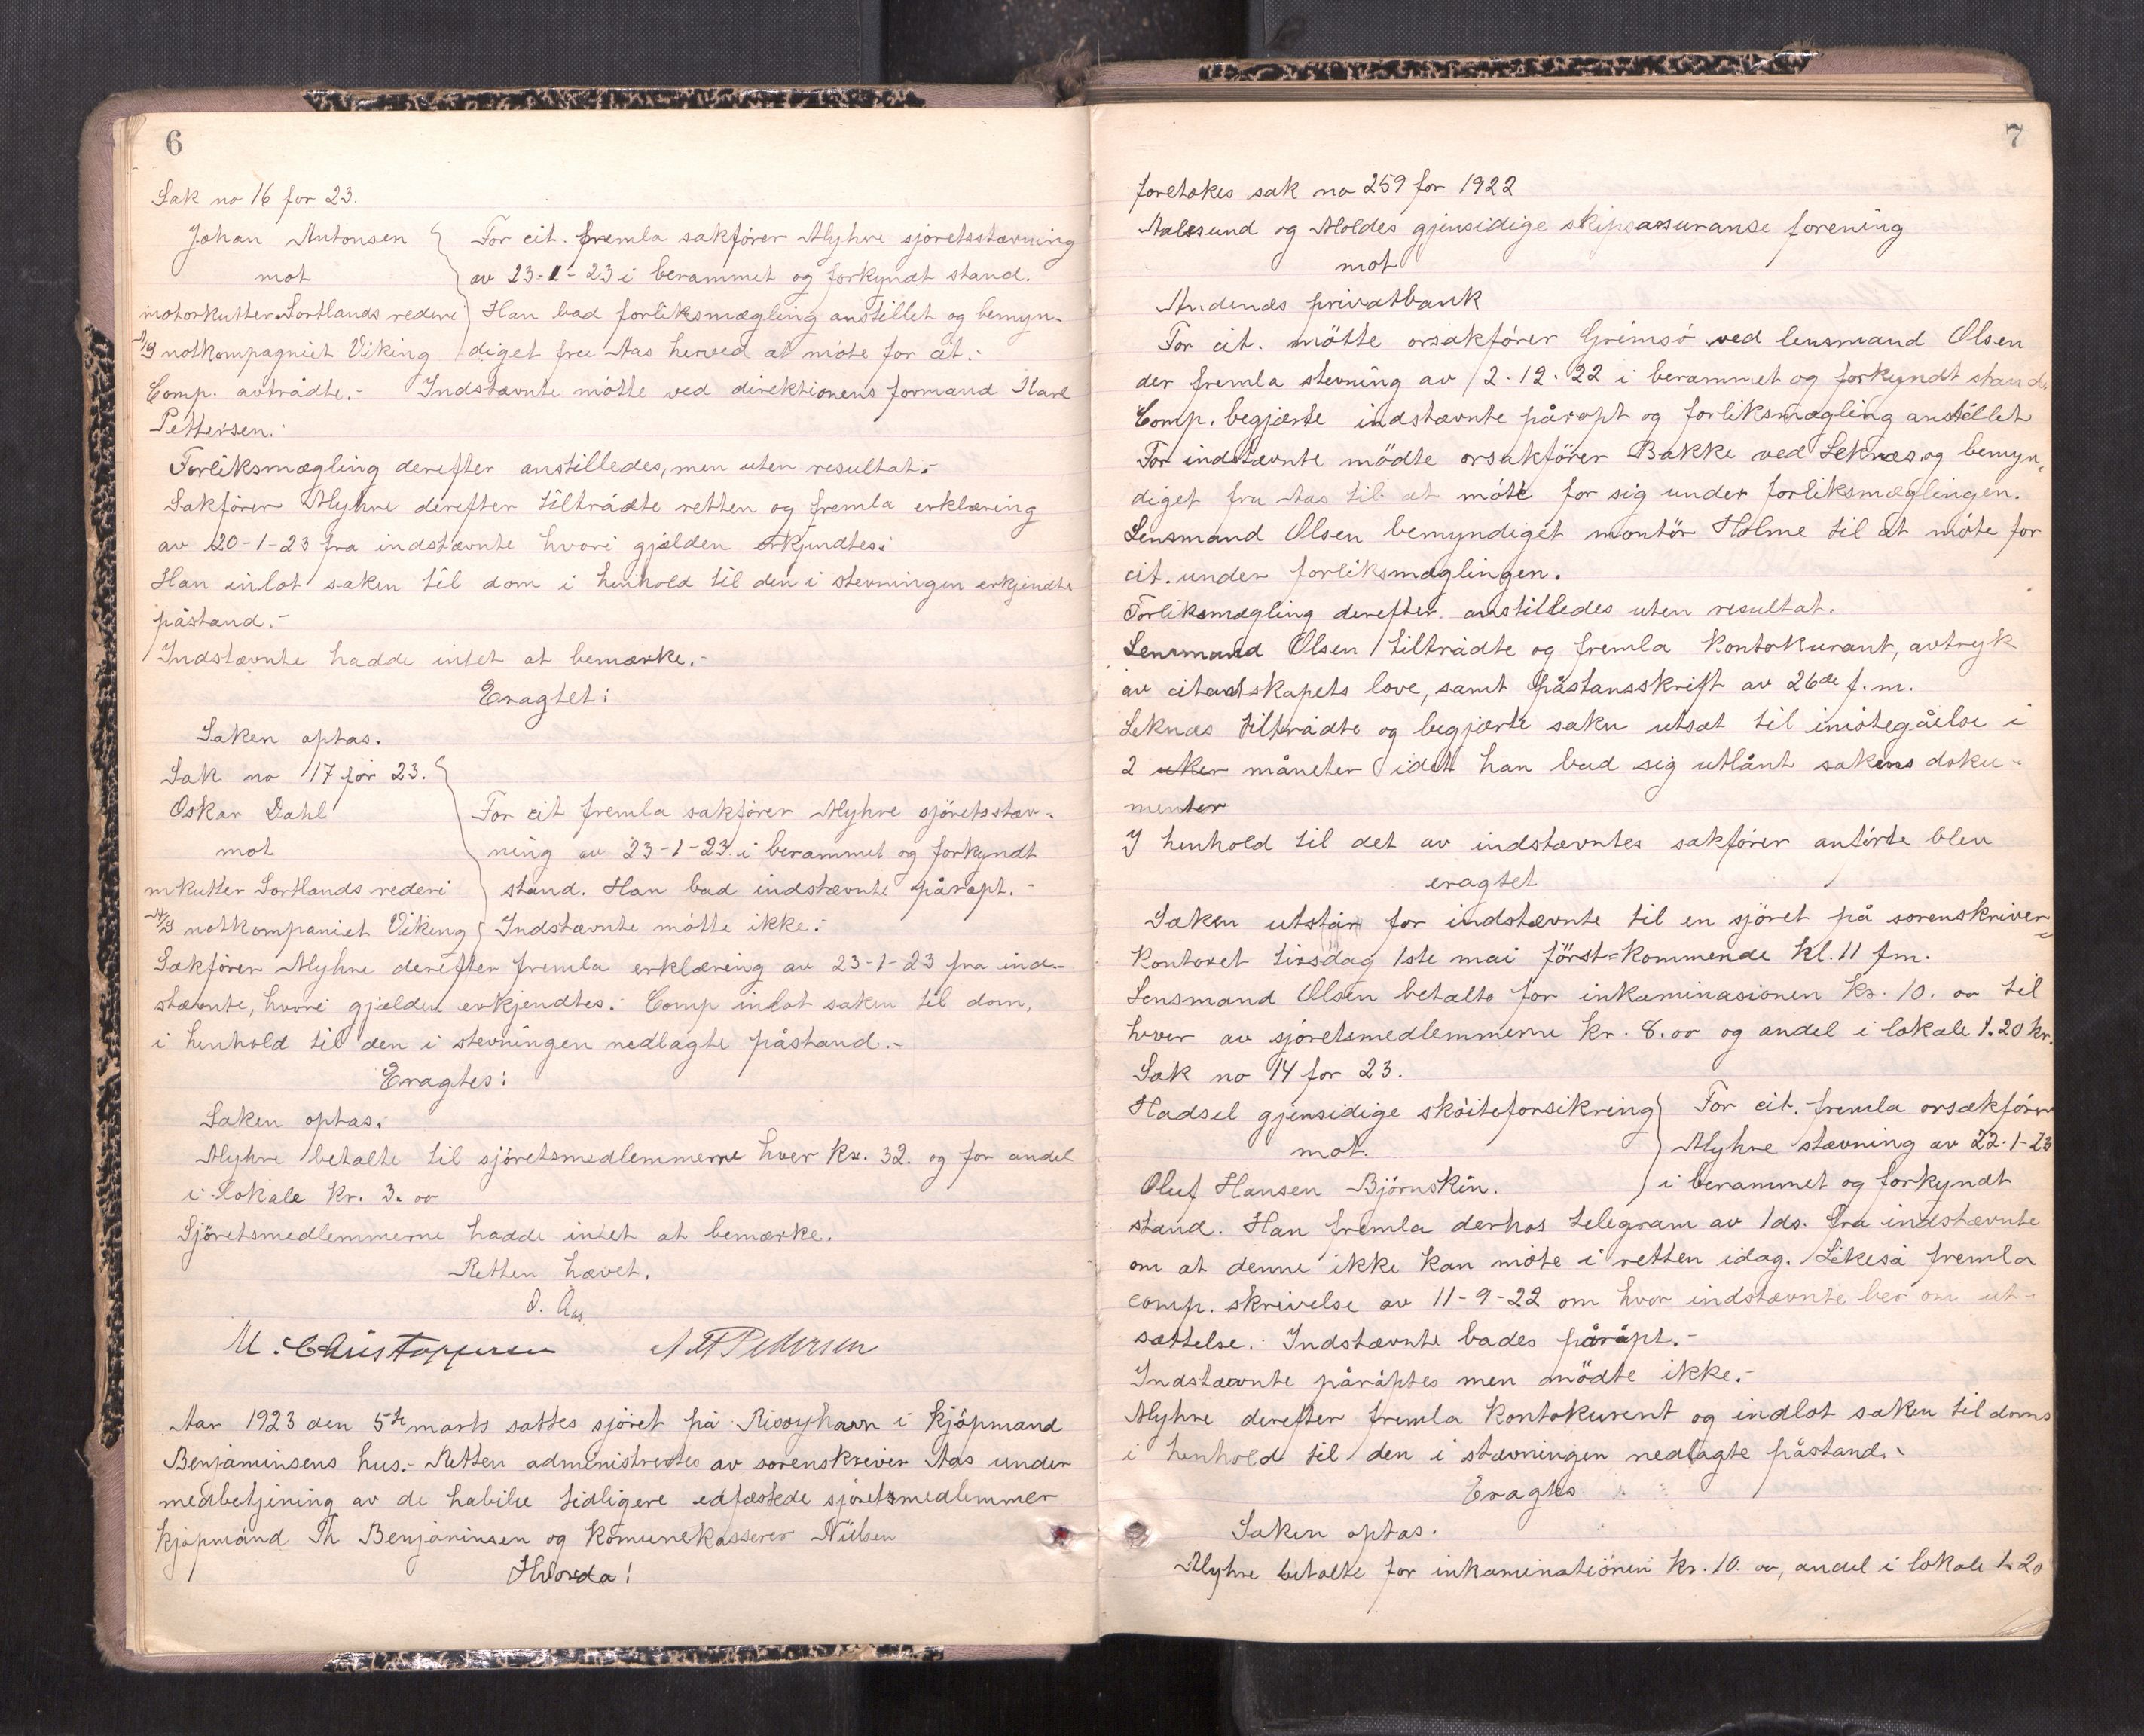 6
Sak no 16 for 23.
Johan Antonsen
mot
motorkutter Sortlands rederi
A/S notkompagniet Viking
For cit. fremla sakfører Myhre sjøretsstævning
av 23-1-23 i berammet og forkyndt stand.
Han bad forliksmægling anstillet og bemyn-
diget fru Aas herved at møte for cit.-
Comp. avtrådte.- Indstævnte møtte ved direktionens formand Karl
Pettersen.-
Forliksmægling derefter anstilledes, men uten resultat.-
Sakfører Myhre derefter tiltrådte retten og fremla erklæring
av 20-1-23 fra indstævnte hvori gjælden erkjendtes.-
Han inlot saken til dom i henhold til den i stevningen erkjendte
påstand.-
Indstævnte hadde intet at bemærke.-
Eragtet:
Saken optas.
Sak no 17 for 23.
Oskar Dahl
mot
mkutter Sortlands rederi
A/S notkompaniet Viking
For cit fremla sakfører Myhre sjøretsstæv-
ning av 23-1-23 i berammet og forkyndt
stand. Han bad indstævnte påropt.-
Indstævnte møtte ikke.-
Sakfører Myhre derefter fremla erklæring av 23-1-23 fra ind-
stævnte, hvori gjælden erkjendtes.- Comp inlot saken til dom,
i henhold til den i stevningen nedlagte påstand.-
Eragtes:
Saken optas.-
Myhre betalte til sjøretsmedlemmerne hver kr. 32. og for andel
i lokale kr. 3.00
Sjøretsmedlemmerne hadde intet at bemærke.
Retten hævet.
O. Aas
M. Christophersen A H Pedersen
Aar 1923 den 5te marts sattes sjøret på Risøyhavn i kjøpmand
Benjaminsens hus.- Retten administrertes av sorenskriver Aas under
medbetjening av de habile tidligere edfæstede sjøretsmedlemmer
kjøpmand Th Benjaminsen og komunekasserer Nilsen
Hvorda!
7
foretokes sak no 259 for 1922
Aalesund og Moldes gjensidige skipsassuranse forening
mot
Andenæs privatbank
For cit. møtte orsakfører Grimsø ved lensmand Olsen
der fremla stevning av 12.12.22 i berammet og forkyndt stand.
Comp. begjærte indstævnte påropt og forliksmægling anstillet
For indstævnte mödte orsakfører Bakke ved Leknæs og bemyn-
diget fru Aas til at møte for sig under forliksmæglingen.
Lensmand Olsen bemyndiget montør Holme til at møte for
cit. under forliksmæglingen.
Forliksmægling derefter anstilledes uten resultat.
Lensmand Olsen tiltrådte og fremla kontokurant, avtryk
av citantskapets love, samt påstansskrift av 26de f.m.
Leknæs tiltrådte og begjærte saken utsat til imøtegåelse i
2 uker måneter idet han bad sig utlånt sakens doku-
menter
I henhold til det av indstævntes sakfører anførte blev
eragtet
Saken utstår for indstævnte til en sjöret på sorenskriver-
kontoret tirsdag 1ste mai först-kommende kl. 11 fm.
Lensmand Olsen betalte for inkaminasionen kr. 10.00 til
hver av sjøretsmedlemmerne kr. 8.00 og andel i lokale 1.20 kr.
Sak no 14 for 23.
Hadsel gjensidige skøiteforsikring
mot.
Oluf Hansen Björnskin.
For cit. fremla orsakfører
Myhre stævning av 22-1-23
i berammet og forkyndt
stand. Han fremla derhos telegram av 1ds. fra indstævnte
om at denne ikke kan møte i retten idag. Likeså fremla
comp. skrivelse av 11-9-22 om hvor indstævnte ber om ut-
sættelse.- Indstævnte bades påråpt.-
Indstævnte påråptes men mödte ikke.-
Myhre derefter fremla kontokurent og indlot saken til doms
i henhold til den i stævningen nedlagte påstand.-
Eragtes
Saken optas.
Myhre betalte for inkaminationen kr. 10.00, andel i lokale 1.20